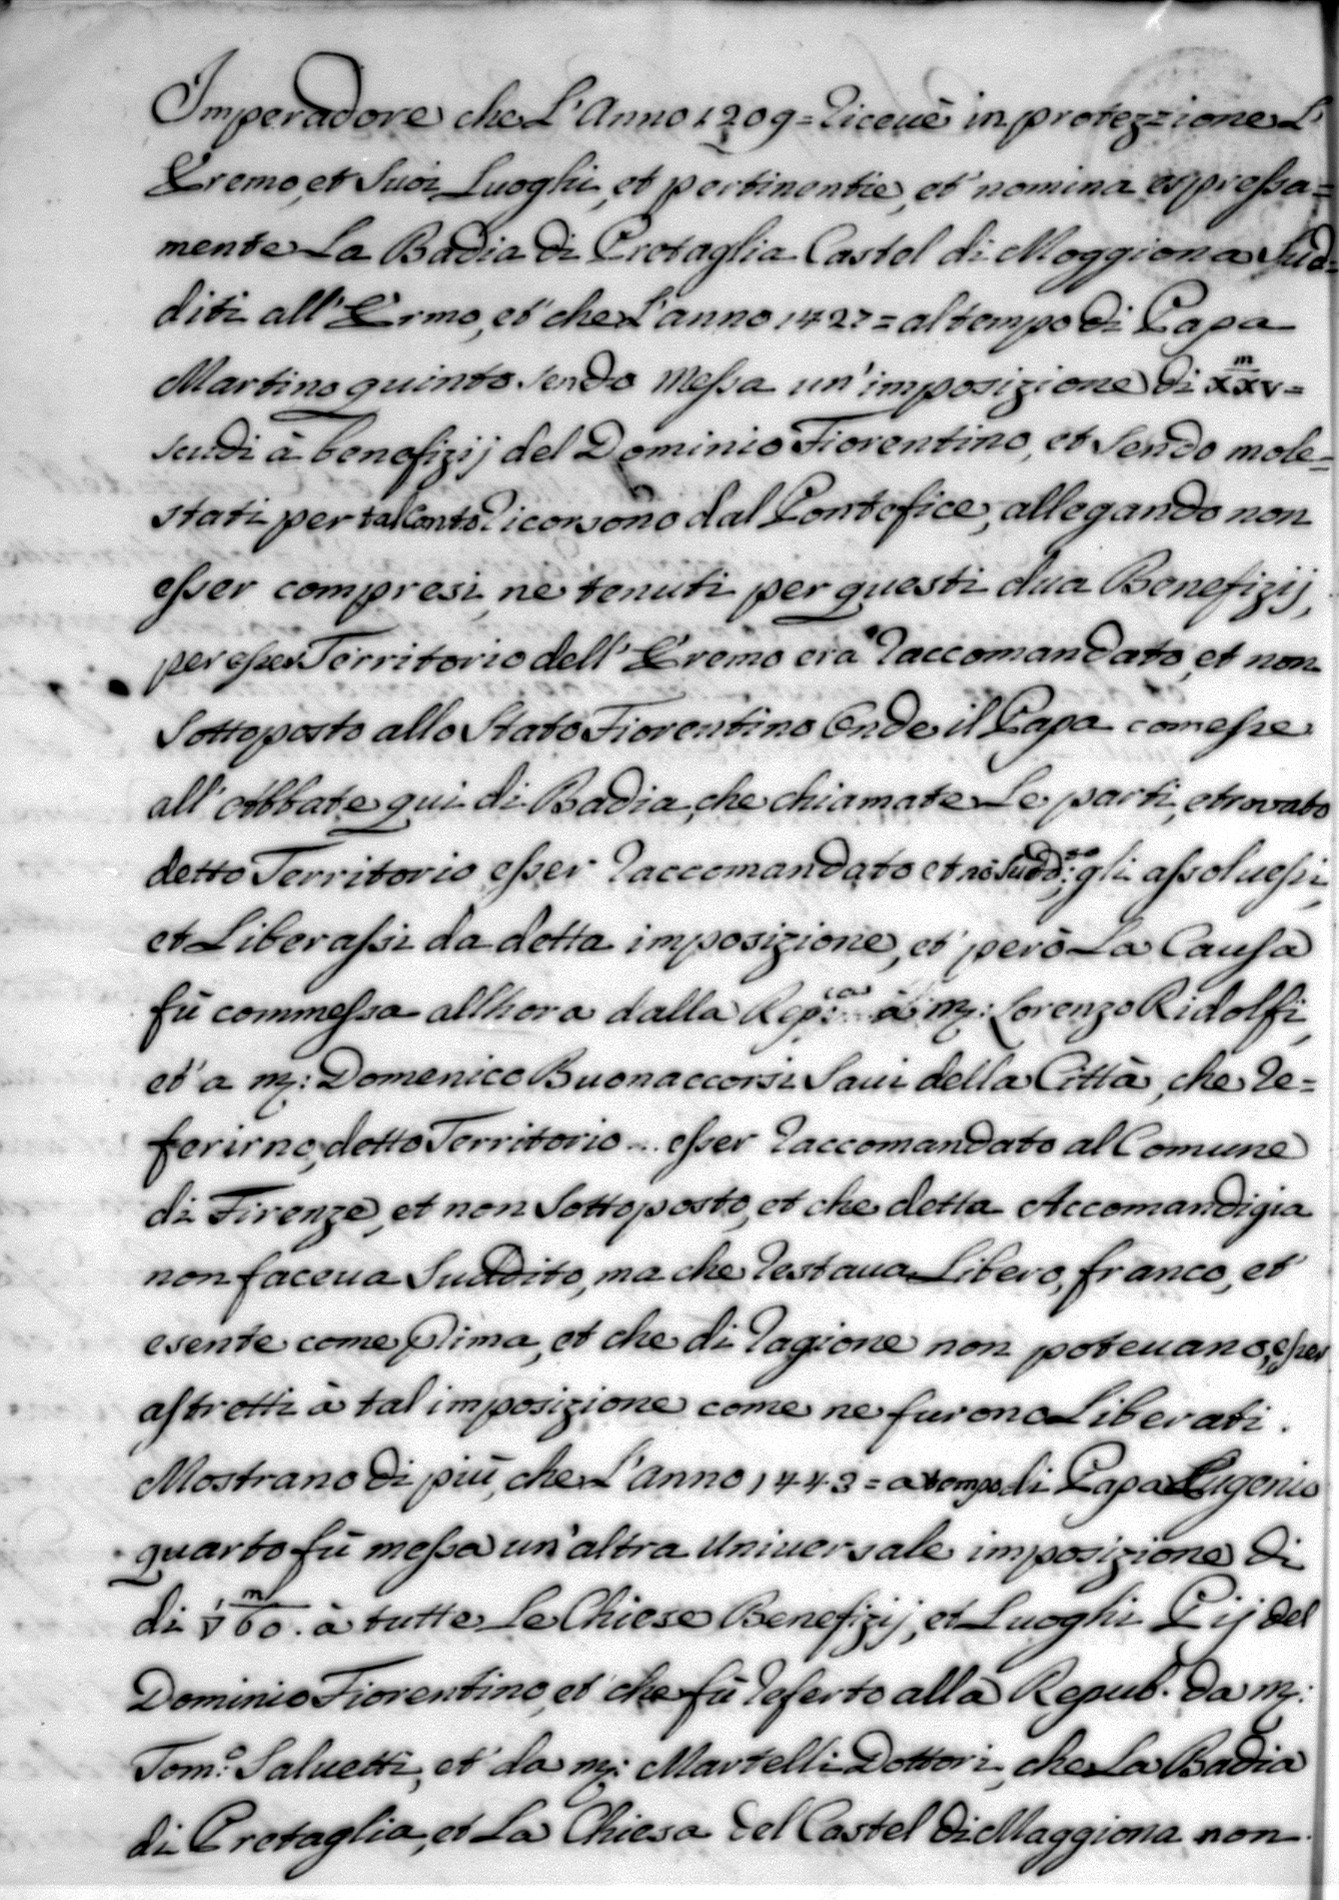 Imperadore che L'Anno 1209= riceuè in protezzione L'
Eremo, et suoi Luoghi, et pertinentie, et nomina espressa=
mente La Badia di Pretaglia Castel di Moggiona Sud=
diti all'Ermo, et che L'anno 1427= al tempo di Papa
Martino quinto sendo messa un'imposizione di xxv m=
scudi à benefizij del Dominio Fiorentino, et sendo mole=
stati per tal conto ricorsono dal Pontefice, allegando non
esser compresi, ne tenuti per questi dua Benefizij,
per esser Territorio dell'Eremo era raccomandato, et non
sottoposto allo Stato Fiorentino Onde il Papa comesse
all'Abbate qui di Badia, che chiamate Le parti, e trovato
detto Territorio esser raccomandato et nõ Sudd:to gli assoluessi,
et Liberassi da detta imposizione, et però La Causa
fù commessa all'hora dalla Rep:ca à m: Lorenzo Ridolfi,
et a m: Domenico Buonaccorsi Saui della Città, che re=
ferirno, detto Territorio ... esser raccomandato al Comune
di Firenze, et non sottoposto, et che detta Accomandigia
non faceua Suddito, ma che restaua Libero, franco, et
esente come prima, et che di ragione non poteuano, esser
astretti à tal imposizione come ne furono Liberati.
Mostrano di più, che L'anno 1443= a tempo di Papa Eugenio
quarto fù messa un'altra Uniuersale imposizione di
di ▽ 60 m. à tutte Le Chiese Benefizij, et Luoghi Pij del
Dominio Fiorentino, et che fù referto alla Repub. da m:
Tom:o Saluetti, et da m: Martelli Dottori, che La Badia
di Pretaglia, et La Chiesa del Castel di Maggiona non